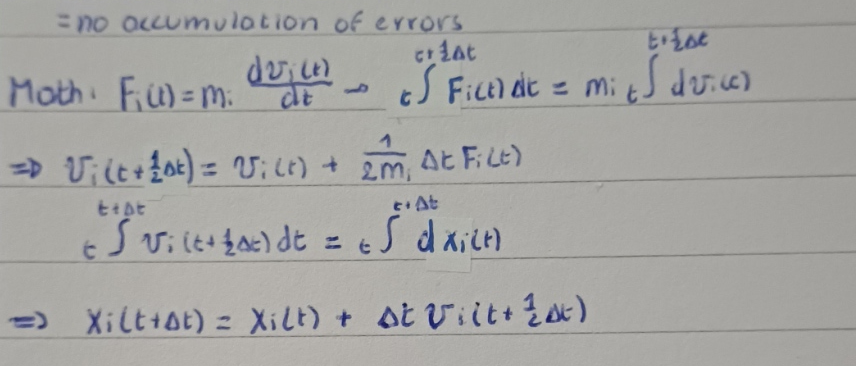 =no accumulation of errors
Math: Fᵢ(t) = mᵢ dvᵢ(t)/dt → t∫^(t+½Δt) Fᵢ(t) dt = mᵢ t∫^(t+½Δt) dvᵢ(t)
⇒ vᵢ(t+½Δt) = vᵢ(t) + 1/2mᵢ Δt Fᵢ(t)
t∫^(t+Δt) vᵢ(t+½Δt) dt = t∫^(t+Δt) dxᵢ(t)
⇒ xᵢ(t+Δt) = xᵢ(t) + Δt vᵢ(t+½Δt)